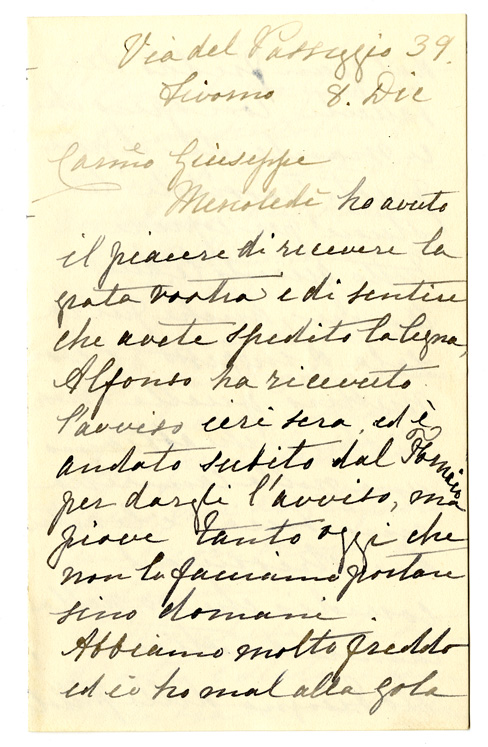 Via del Passeggio 39.
Livorno 8. Dic
Carmo Giuseppe
Mercoledì ho avuto
il piacere di ricevere la
grata vostra e di sentire
che avete spedito la legna,
Alfonso ha ricevuto
l'avviso ieri sera, ed è
andato subito dal
per dargli l'avviso, ma
piove tanto oggi che
non la facciamo portare
sino domani.
Abbiamo molto freddo
ed io ho mal alla gola